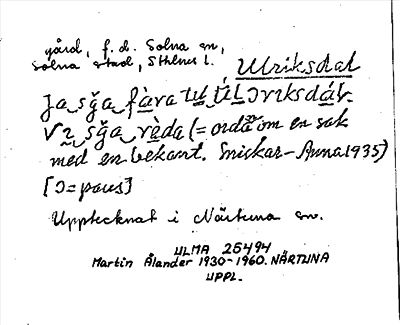 gård, f. d. Solna sn,
Solna stad, Sthlms l.
Ulriksdal
Ja sğa fàra tıl úl ɔriksdál.
Vi sğa rèda (= ordna om en sak
med en bekant. Smiskar-Anna 1935)
[ɔ = paus]
Upptecknat i Närtuna sn.
ULMA 25494
Martin Ålander 1930-1960. NÄRTUNA
UPPL.